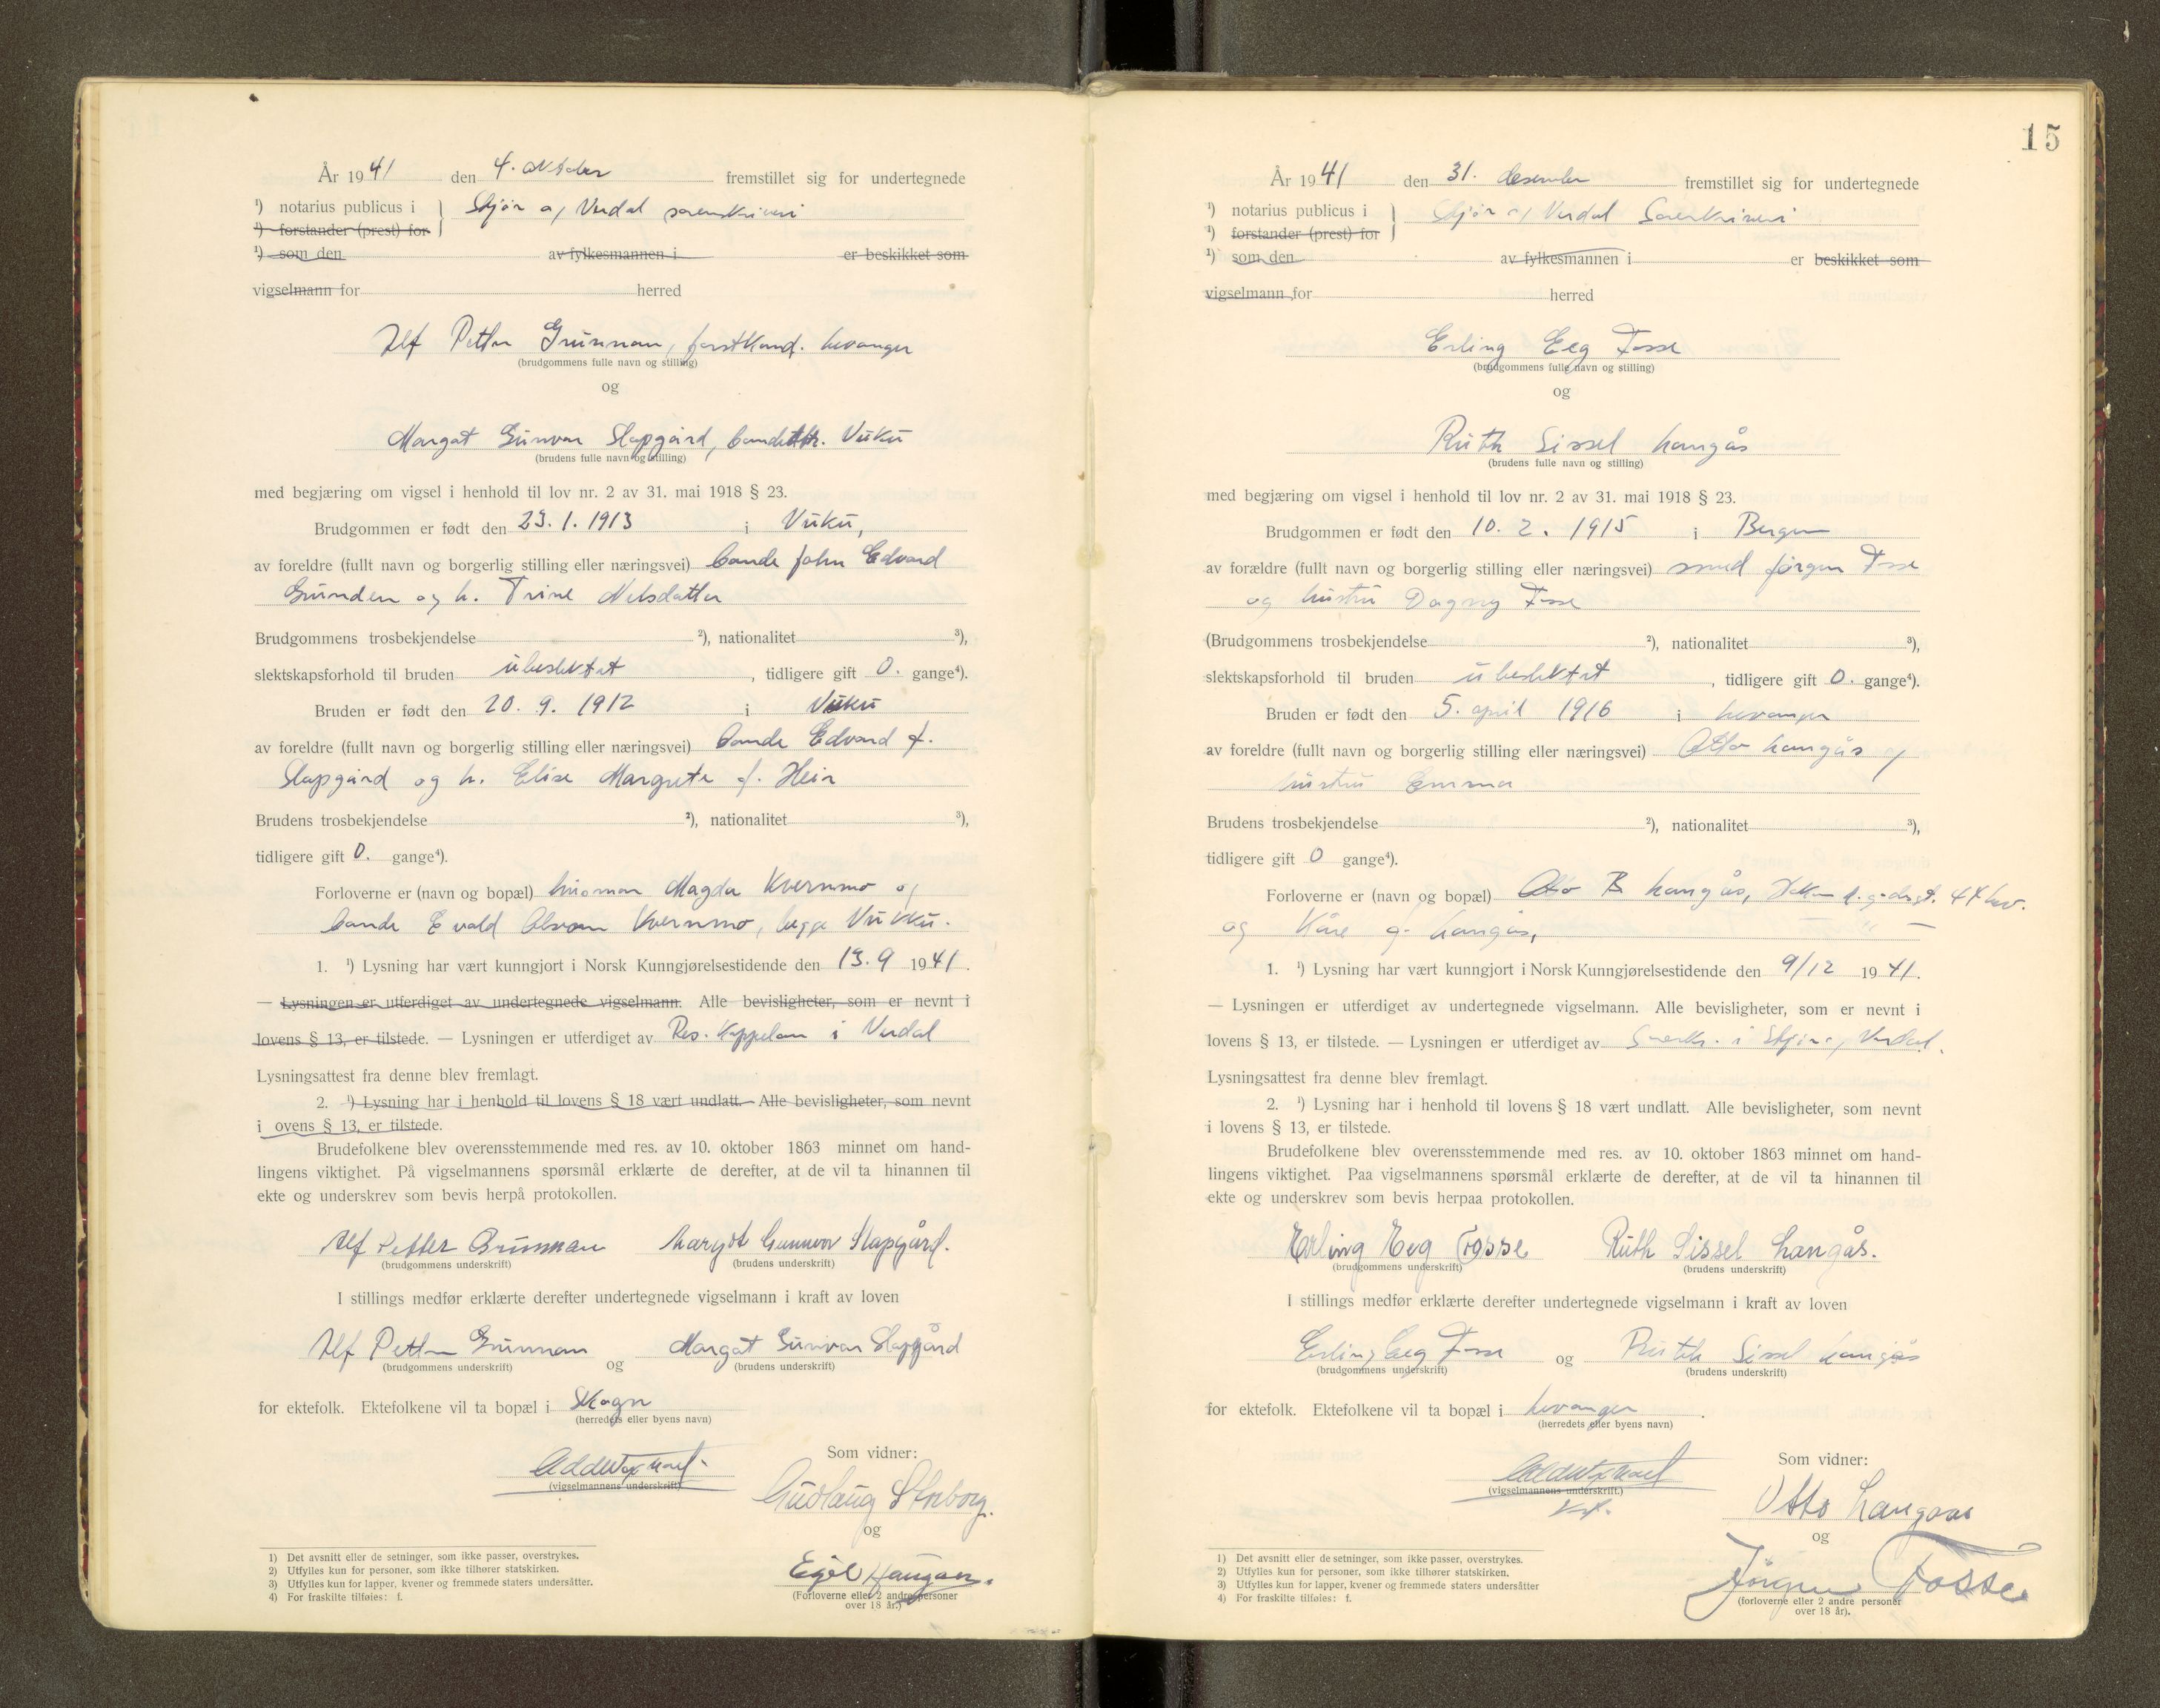 År 1941 den 4. oktober fremstillet sig for undertegnede
¹) notarius publicus i } Stjør og Verdal sorenskriveri
¹) forstander (prest) for
¹) som den av fylkesmannen i er beskikket som
vigselmann for herred
Alf Petter Grunnan, forstkand. Levanger
(brudgommens fulle navn og stilling)
og
Margot Gunvor Slapgård, bondedtr. Vuku
(brudens fulle navn og stilling)
med begjæring om vigsel i henhold til lov nr. 2 av 31. mai 1918 § 23.
Brudgommen er født den 23. 1. 1913 i Vuku,
av foreldre (fullt navn og borgerlig stilling eller næringsvei) bonde John Edvard
og h. Trine
Brudgommens trosbekjendelse ²), nationalitet ³),
slektskapsforhold til bruden ubeslektet, tidligere gift 0. gange⁴).
Bruden er født den 20. 9. 1912 i Vuku
av foreldre (fullt navn og borgerlig stilling eller næringsvei) bonde Edvard J.
Slapgård og h. Elise Margrete f. Hein
Brudens trosbekjendelse ²), nationalitet ³),
tidligere gift 0. gange⁴).
Forloverne er (navn og bopæl) Magda Kvernmo og
bonde Evald Kvernmo, begge Vukku.
1. ¹) Lysning har vært kunngjort i Norsk Kunngjørelsestidende den 13. 9 1941.
— Lysningen er utferdiget av undertegnede vigselmann. Alle bevisligheter, som er nevnt i
lovens § 13, er tilstede. — Lysningen er utferdiget av Res. Kappelan i Verdal
Lysningsattest fra denne blev fremlagt.
2. ¹) Lysning har i henhold til lovens § 18 vært undlatt. Alle bevisligheter, som nevnt
i ovens § 13, er tilstede.
Brudefolkene blev overensstemmende med res. av 10. oktober 1863 minnet om hand-
lingens viktighet. På vigselmannens spørsmål erklærte de derefter, at de vil ta hinannen til
ekte og underskrev som bevis herpå protokollen.
Alf Petter Grunnan Margot Gunvor Slapgård.
(brudgommens underskrift) (brudens underskrift)
I stillings medfør erklærte derefter undertegnede vigselmann i kraft av loven
Alf Petter Grunnan og Margot Gunvor Slapgård
(brudgommens underskrift) (brudens underskrift)
for ektefolk. Ektefolkene vil ta bopæl i Skogn
(herredets eller byens navn)
Som vidner:
(vigselmannens underskrift)
Gudlaug Storborg.
og
Egil Haugan.
(Forloverne eller 2 andre personer
over 18 år.)
1) Det avsnitt eller de setninger, som ikke passer, overstrykes.
2) Utfylles kun for personer, som ikke tilhører statskirken.
3) Utfylles kun for lapper, kvener og fremmede staters undersåtter.
4) For fraskilte tilføies: f.
15
År 1941 den 31. desember fremstillet sig for undertegnede
¹) notarius publicus i } Stjør og Verdal Sorenskriveri
¹) forstander (prest) for
¹) som den av fylkesmannen i er beskikket som
vigselmann for herred
Erling Eeg Fosse
(brudgommens fulle navn og stilling)
og
Ruth Sissel Langås
(brudens fulle navn og stilling)
med begjæring om vigsel i henhold til lov nr. 2 av 31. mai 1918 § 23.
Brudgommen er født den 10. 2. 1915 i Bergen
av forældre (fullt navn og borgerlig stilling eller næringsvei) smed Jørgen Fosse
og hustru Dagny Fosse
(Brudgommens trosbekjendelse ²), nationalitet ³),
slektskapsforhold til bruden ubeslektet, tidligere gift 0. gange⁴).
Bruden er født den 5. april 1916 i Levanger
av foreldre (fullt navn og borgerlig stilling eller næringsvei) Otto Langås og
hustru Emma
Brudens trosbekjendelse ²), nationalitet ³),
tidligere gift 0 gange⁴).
Forloverne er (navn og bopæl) Otto B Langås, 44 Lev.
og Kåre Langås,
1. ¹) Lysning har vært kunngjort i Norsk Kunngjørelsestidende den 9/12 1941.
— Lysningen er utferdiget av undertegnede vigselmann. Alle bevisligheter, som er nevnt i
lovens § 13, er tilstede. — Lysningen er utferdiget av Sorenskr. i Stjør og Verdal.
Lysningsattest fra denne blev fremlagt.
2. ¹) Lysning har i henhold til lovens § 18 vært undlatt. Alle bevisligheter, som nevnt
i lovens § 13, er tilstede.
Brudefolkene blev overensstemmende med res. av 10. oktober 1863 minnet om hand-
lingens viktighet. Paa vigselmannens spørsmål erklærte de derefter, at de vil ta hinannen til
ekte og underskrev som bevis herpaa protokollen.
Erling Eeg Fosse Ruth Sissel Langås.
(brudgommens underskrift) (brudens underskrift)
I stillings medfør erklærte derefter undertegnede vigselmann i kraft av loven
Erling Eeg Fosse og Ruth Sissel Langås
(brudgommens underskrift) (brudens underskrift)
for ektefolk. Ektefolkene vil ta bopæl i Levanger.
(herredets eller byens navn)
Som vidner:
(vigselmannens underskrift.)
Otto Langaas
og
Jörgen Fosse
(forloverne eller 2 andre personer
over 18 år).
1) Det avsnitt eller de setninger, som ikke passer, overstrykes.
2) Utfylles kun for personer, som ikke tilhører statskirken.
3) Utfylles kun for lapper, kvener og fremmede staters undersåtter
4) For fraskilte tilføies: f.